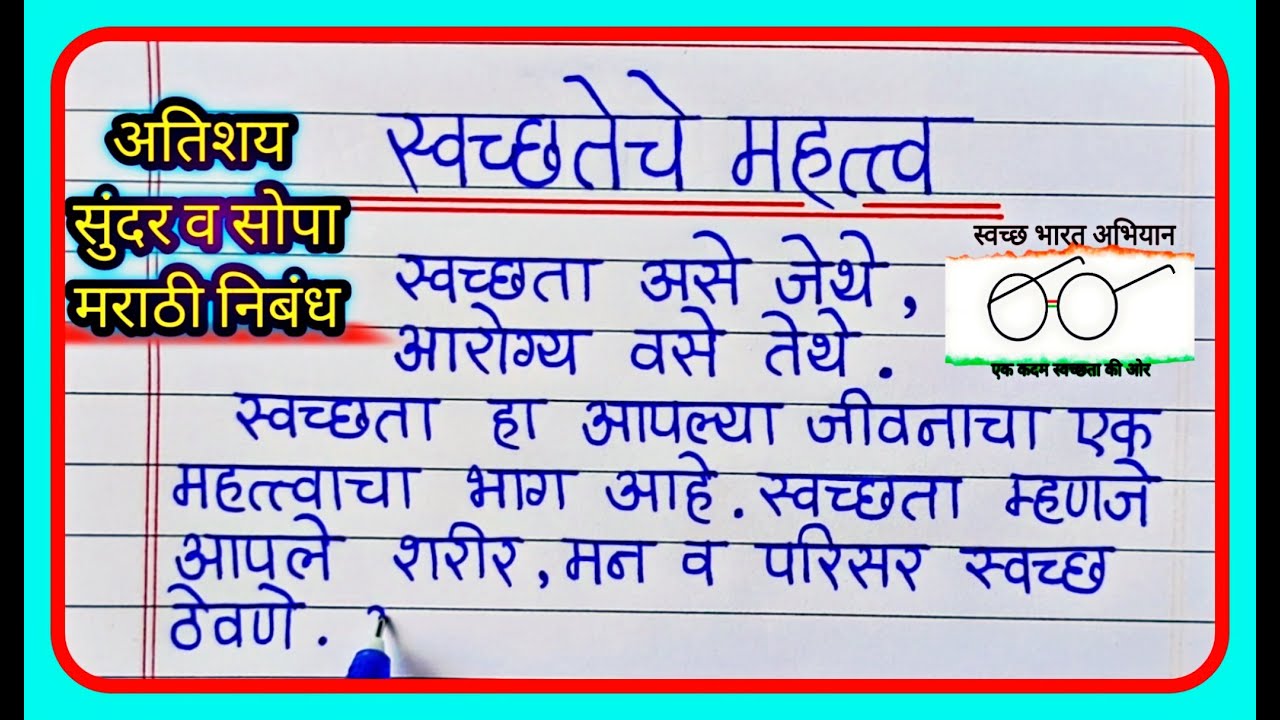 अतिशय
सुंदर व सोपा
मराठी निबंध
स्वच्छतेचे महत्त्व
स्वच्छता असे जेथे,
आरोग्य वसे तेथे.
स्वच्छ भारत अभियान
एक कदम स्वच्छता की ओर
स्वच्छता हा आपल्या जीवनाचा एक
महत्त्वाचा भाग आहे. स्वच्छता म्हणजे
आपले शरीर, मन व परिसर स्वच्छ
ठेवणे.